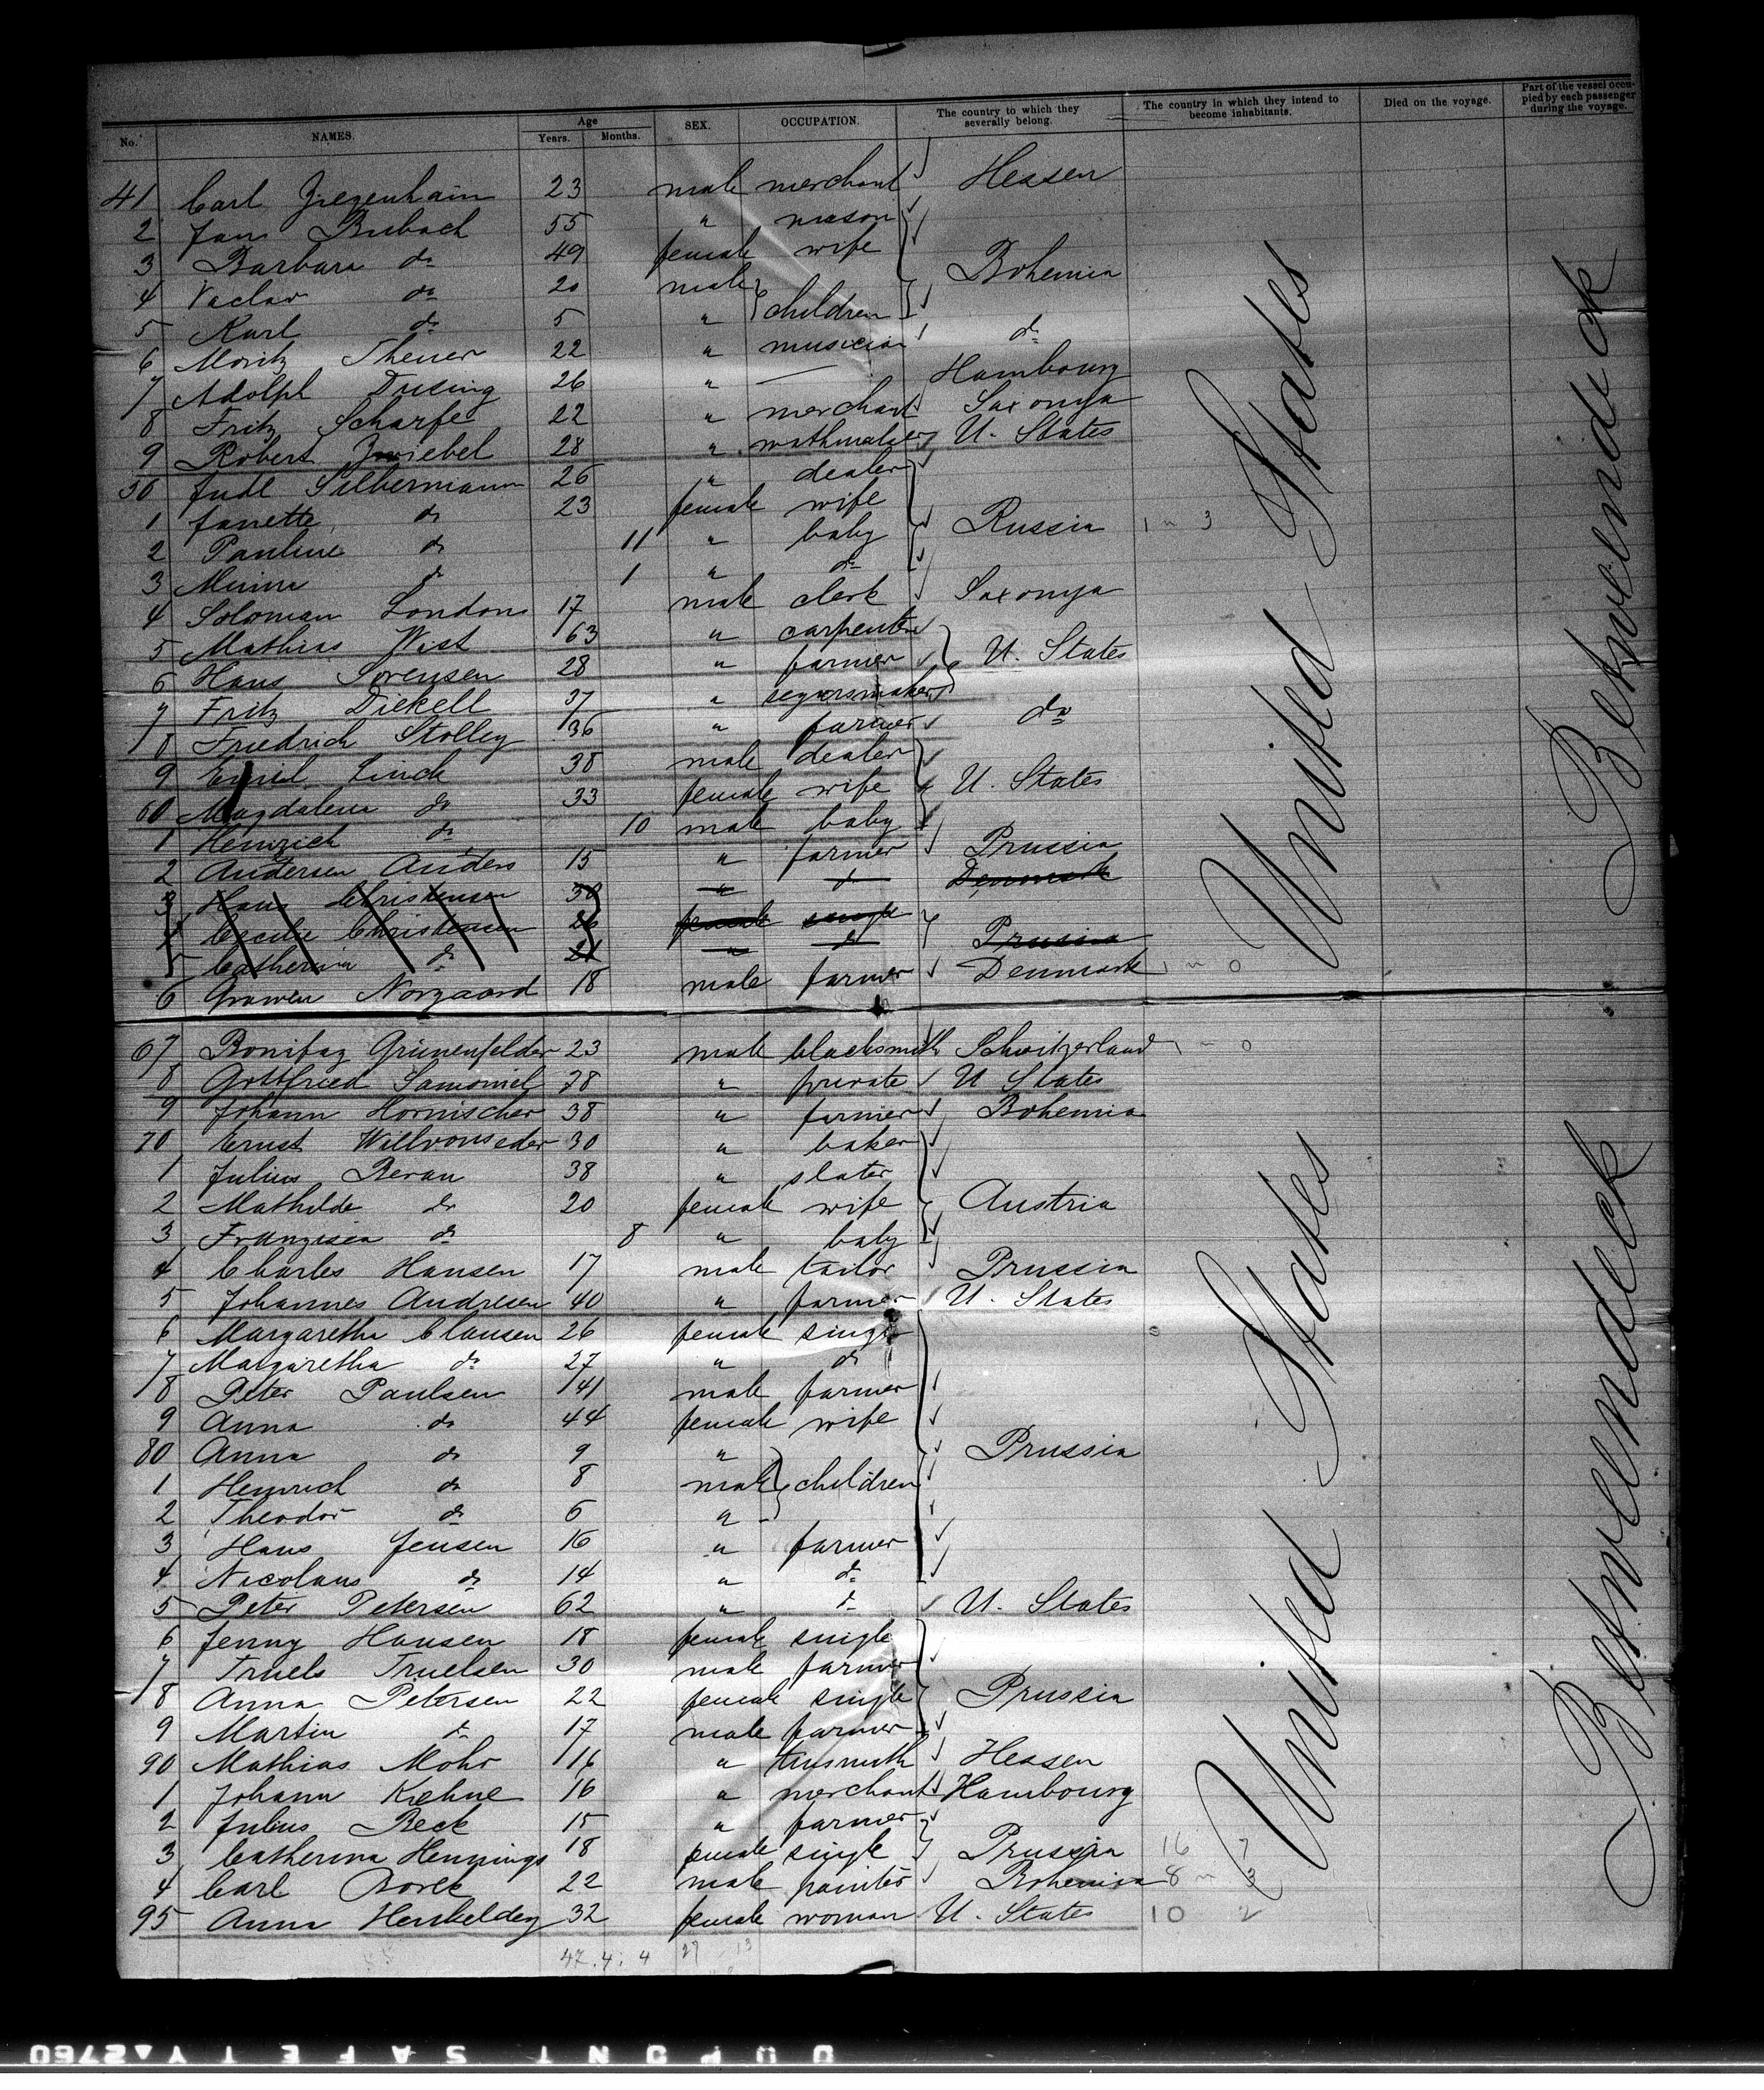 No. NAMES. Age Years. Months. SEX. OCCUPATION. The country to which they severally belong. The country in which they intend to become inhabitants. Died on the voyage. Part of the vessel occupied by each passenger during the voyage.
41 Carl Ziegenhain 23 male merchant Hessen
2 Jan Bubach 55 " mason
3 Barbara do 49 female wife Bohemia
4 Vaclav do 20 male
5 Karl do 5 " children
6 Moritz Theuer 22 " musician do
7 Adolph Dusing 26 " — Hambourg
8 Fritz Scharfe 22 " merchant Saxonya
9 Robert Zwiebel 28 " U. States
50 Judl Silbermann 26 " dealer
1 Janette do 23 female wife
2 Pauline do 11 " baby Russia 1 " 3
3 Minna do 1 " do
4 Soloman London 17 male clerk Saxonya
5 Mathias Wist 63 " carpenter
6 Hans Sorensen 28 " farmer U. States
7 Fritz Diekell 37 " segarsmaker
8 Friedrich Stolley 36 " farmer do
9 Emil Linck 38 male dealer
60 Magdalena do 33 female wife U. States
1 Heinrich do 10 male baby
2 Andersen Anders 15 " farmer Prussia
3 Hans Christensen 30 " do Denmark
4 Cecilie Christensen 26 female single
5 Catherina do 21 " do Prussia
6 Norgaard 18 male farmer Denmark 1 " 0
67 Bonifaz Grünenfelder 23 male blacksmith Schwitzerland 1 " 0
8 Gottfried Samoniel 28 " private U States
9 Johann Hornischer 38 " farmer Bohemia
70 Ernst Willvonseder 30 " baker
1 Julius Beran 38 " slater
2 Mathilde do 20 female wife Austria
3 Franzisca do 8 " baby
4 Charles Hansen 17 male tailor Prussia
5 Johannes Andresen 40 " farmer U. States
6 Margaretha Clausen 26 female single
7 Margaretha do 27 " do
8 Peter Paulsen 41 male farmer
9 Anna do 44 female wife
80 Anna do 9 " Prussia
1 Heinrich do 8 male children
2 Theodor do 6 "
3 Hans Jensen 16 " farmer
4 Nicolaus do 14 " do
5 Peter Petersen 62 " do U. States
6 Jenny Hansen 18 female single
7 Truels Truelsen 30 male farmer
8 Anna Petersen 22 female single Prussia
9 Martin do 17 male farmer
90 Mathias Mohr 16 " tinsmith Hessen
1 Johann Kehne 16 " merchant Hambourg
2 Julius Beck 15 " farmer
3 Catherina Hennings 18 female single Prussia 16 7
4 Carl Borek 22 male painter Bohemia 8 " 3
95 Anna Henkeldey 32 female woman U. States 10 2
47. 4: 4 27 13
United States
United States
Betweendick
Betweendeck
DUPONT SAFETY 2760